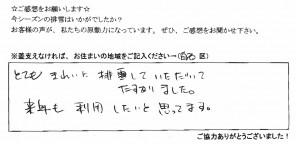 ☆ご感想をお願いします☆
今シーズンの排雪はいかがでしたか?
お客様の声が、私たちの原動力になっています。ぜひ、ご感想をお聞かせ下さい。
※差支えなければ、お住まいの地域をご記入ください→( 区)
とてもきれいに排雪していただいて
たすかりました。
来年も利用したいと思ってます。
ご協力ありがとうございました!